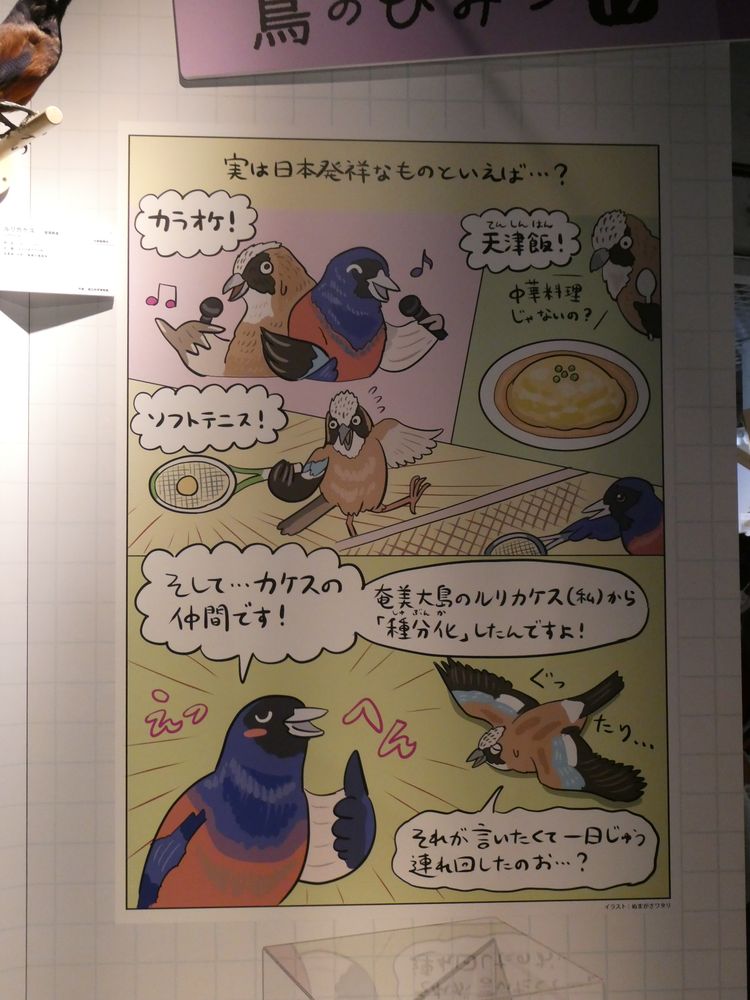 鳥のひみつ
ルリカケス
実は日本発祥なものといえば…？
カラオケ！
てんしんはん
天津飯！
中華料理
じゃないの？
ソフトテニス！
そして…カケスの
仲間です！
奄美大島のルリカケス(私)から
しゅぶんか
「種分化」したんですよ！
えっ
へん
ぐっ
たり…
それが言いたくて一日じゅう
連れ回したのお…？
イラスト：ぬまがさワタリ